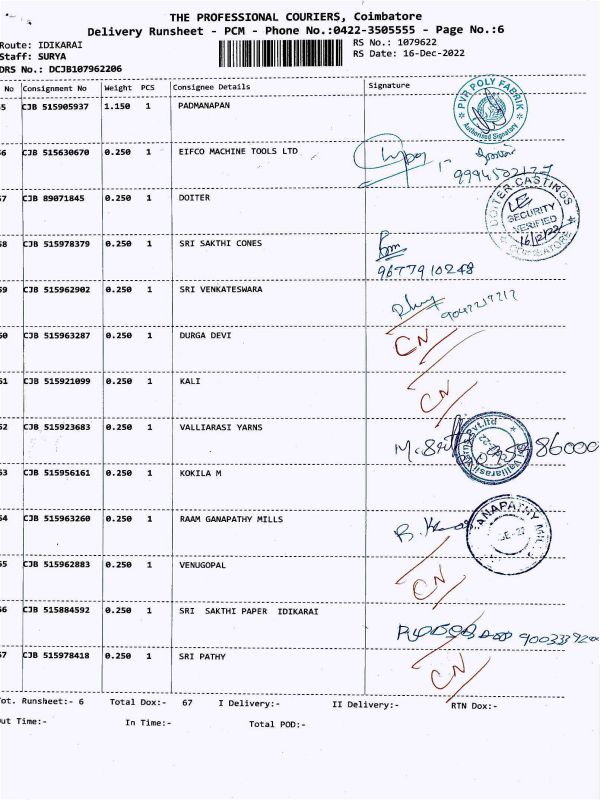 THE PROFESSIONAL COURIERS, Coimbatore
Delivery Runsheet - PCM - Phone No.:0422-3505555 - Page No.:6
Route: IDIKARAI RS No.: 1079622
Staff: SURYA RS Date: 16-Dec-2022
DRS No.: DCJB107962206
No Consignment No Weight PCS Consignee Details Signature
5 CJB 515905937 1.150 1 PADMANAPAN
PVR POLY FABRIK
Authorised Signatory
6 CJB 515630670 0.250 1 EIFCO MACHINE TOOLS LTD
7 CJB 89071845 0.250 1 DOITER
DOITER CASTINGS
SECURITY
VERIFIED
16/12/22
COIMBATORE
8 CJB 515978379 0.250 1 SRI SAKTHI CONES
9677910248
9 CJB 515962902 0.250 1 SRI VENKATESWARA
0 CJB 515963287 0.250 1 DURGA DEVI CN
1 CJB 515921099 0.250 1 KALI CN
2 CJB 515923683 0.250 1 VALLIARASI YARNS
86000
3 CJB 515956161 0.250 1 KOKILA M
4 CJB 515963260 0.250 1 RAAM GANAPATHY MILLS
ANAPATHY MI
5 CJB 515962883 0.250 1 VENUGOPAL CN
6 CJB 515884592 0.250 1 SRI SAKTHI PAPER IDIKARAI
7 CJB 515978418 0.250 1 SRI PATHY CN
ot. Runsheet:- 6 Total Dox:- 67 I Delivery:- II Delivery:- RTN Dox:-
ut Time:- In Time:- Total POD:-